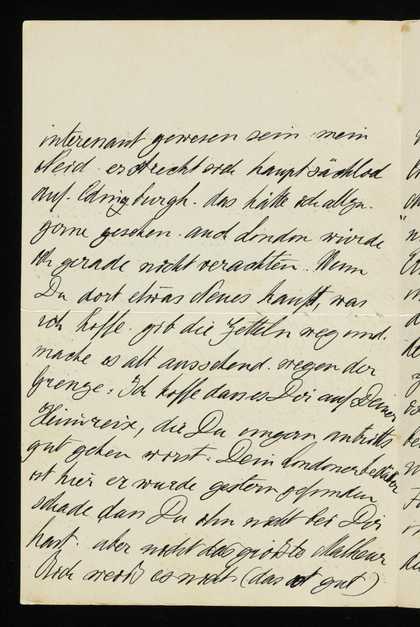 interessant gewesen sein mein
Neid erstreckt sich hauptsächlich
auf Edingburgh. das hätte ich allzu
gerne gesehen. auch London würde
ich gerade nicht verachten. Wenn
Du dort etwas Neues kaufst, was
ich hoffe. gib die Zetteln weg und
mache es alt aussehend. wegen der
Grenze. Ich hoffe dass es Dir auf Deiner
Heimreise, die Du ungern antrittst
gut gehen wird. Dein Londoner
ist hier er wurde gestern gefunden
schade dass Du ihn nicht bei Dir
hast. aber nicht das grösste Malheur
Rich weiss es nicht (das ist gut)